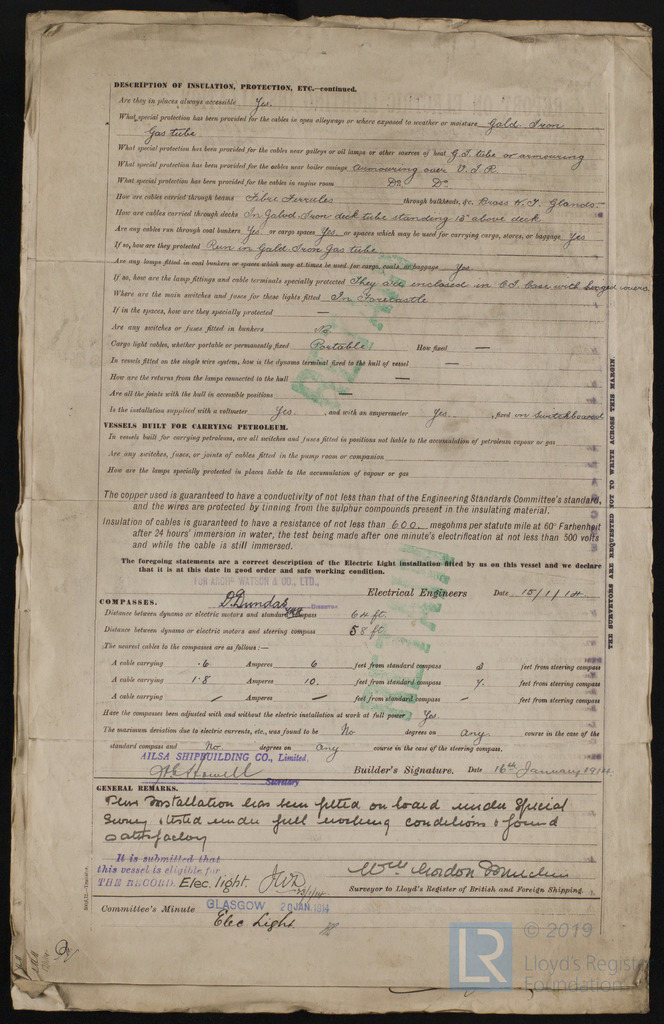 DESCRIPTION OF INSULATION, PROTECTION, ETC.—continued.
Are they in places always accessible Yes.
What special protection has been provided for the cables in open alleyways or where exposed to weather or moisture Galvd. Iron
Gas tube
What special protection has been provided for the cables near galleys or oil lamps or other sources of heat G.I. tube or armouring
What special protection has been provided for the cables near boiler casings armouring over V.I.R
What special protection has been provided for the cables in engine room Do. Do.
How are cables carried through beams Fibre Ferrules through bulkheads, &c. Brass W.T. Glands.
How are cables carried through decks In Galvd Iron deck tube standing 18" above deck
Are any cables run through coal bunkers Yes or cargo spaces Yes or spaces which may be used for carrying cargo, stores, or baggage Yes
If so, how are they protected Run in Galvd. Iron Gas tube
Are any lamps fitted in coal bunkers or spaces which may at times be used for cargo, coals, or baggage Yes
If so, how are the lamp fittings and cable terminals specially protected They are enclosed in C.I. Case with hinged covers
Where are the main switches and fuses for these lights fitted In Forecastle
If in the spaces, how are they specially protected —
Are any switches or fuses fitted in bunkers No
Cargo light cables, whether portable or permanently fixed Portable How fixed —
In vessels fitted on the single wire system, how is the dynamo terminal fixed to the hull of vessel —
How are the returns from the lamps connected to the hull —
Are all the joints with the hull in accessible positions —
Is the installation supplied with a voltmeter Yes. , and with an amperemeter Yes. , fixed on switchboard
VESSELS BUILT FOR CARRYING PETROLEUM.
In vessels built for carrying petroleum, are all switches and fuses fitted in positions not liable to the accumulation of petroleum vapour or gas
Are any switches, fuses, or joints of cables fitted in the pump room or companion
How are the lamps specially protected in places liable to the accumulation of vapour or gas
The copper used is guaranteed to have a conductivity of not less than that of the Engineering Standards Committee's standard,
and the wires are protected by tinning from the sulphur compounds present in the insulating material.
Insulation of cables is guaranteed to have a resistance of not less than 600 megohms per statute mile at 60° Farhenheit
after 24 hours' immersion in water, the test being made after one minute's electrification at not less than 500 volts
and while the cable is still immersed.
The foregoing statements are a correct description of the Electric Light installation fitted by us on this vessel and we declare
that it is at this date in good order and safe working condition.
FOR ARCHD WATSON & CO., LTD.,
D. Dundas Director Electrical Engineers Date 15/1/14
COMPASSES.
Distance between dynamo or electric motors and standard compass 64 ft.
Distance between dynamo or electric motors and steering compass 58 ft.
The nearest cables to the compasses are as follows:—
A cable carrying .6 Amperes 6 feet from standard compass 3 feet from steering compass
A cable carrying 1.8 Amperes 10. feet from standard compass 7. feet from steering compass
A cable carrying — Amperes — feet from standard compass — feet from steering compass
Have the compasses been adjusted with and without the electric installation at work at full power Yes.
The maximum deviation due to electric currents, etc., was found to be No degrees on any. course in the case of the
standard compass and No degrees on any course in the case of the steering compass.
AILSA SHIPBUILDING CO., Limited.
Builder's Signature. Date 16th January 1914.
Secretary
THE SURVEYORS ARE REQUESTED NOT TO WRITE ACROSS THIS MARGIN.
GENERAL REMARKS.
This Installation has been fitted on board under Special
Survey & tested under full working conditions & found
satisfactory
It is submitted that
this vessel is eligible for
THE RECORD. Elec. light. JWD 23/1/14
Surveyor to Lloyd's Register of British and Foreign Shipping.
Committee's Minute GLASGOW 20 JAN. 1914
Elec Light
LR
© 2019
Lloyd's Register
Foundation